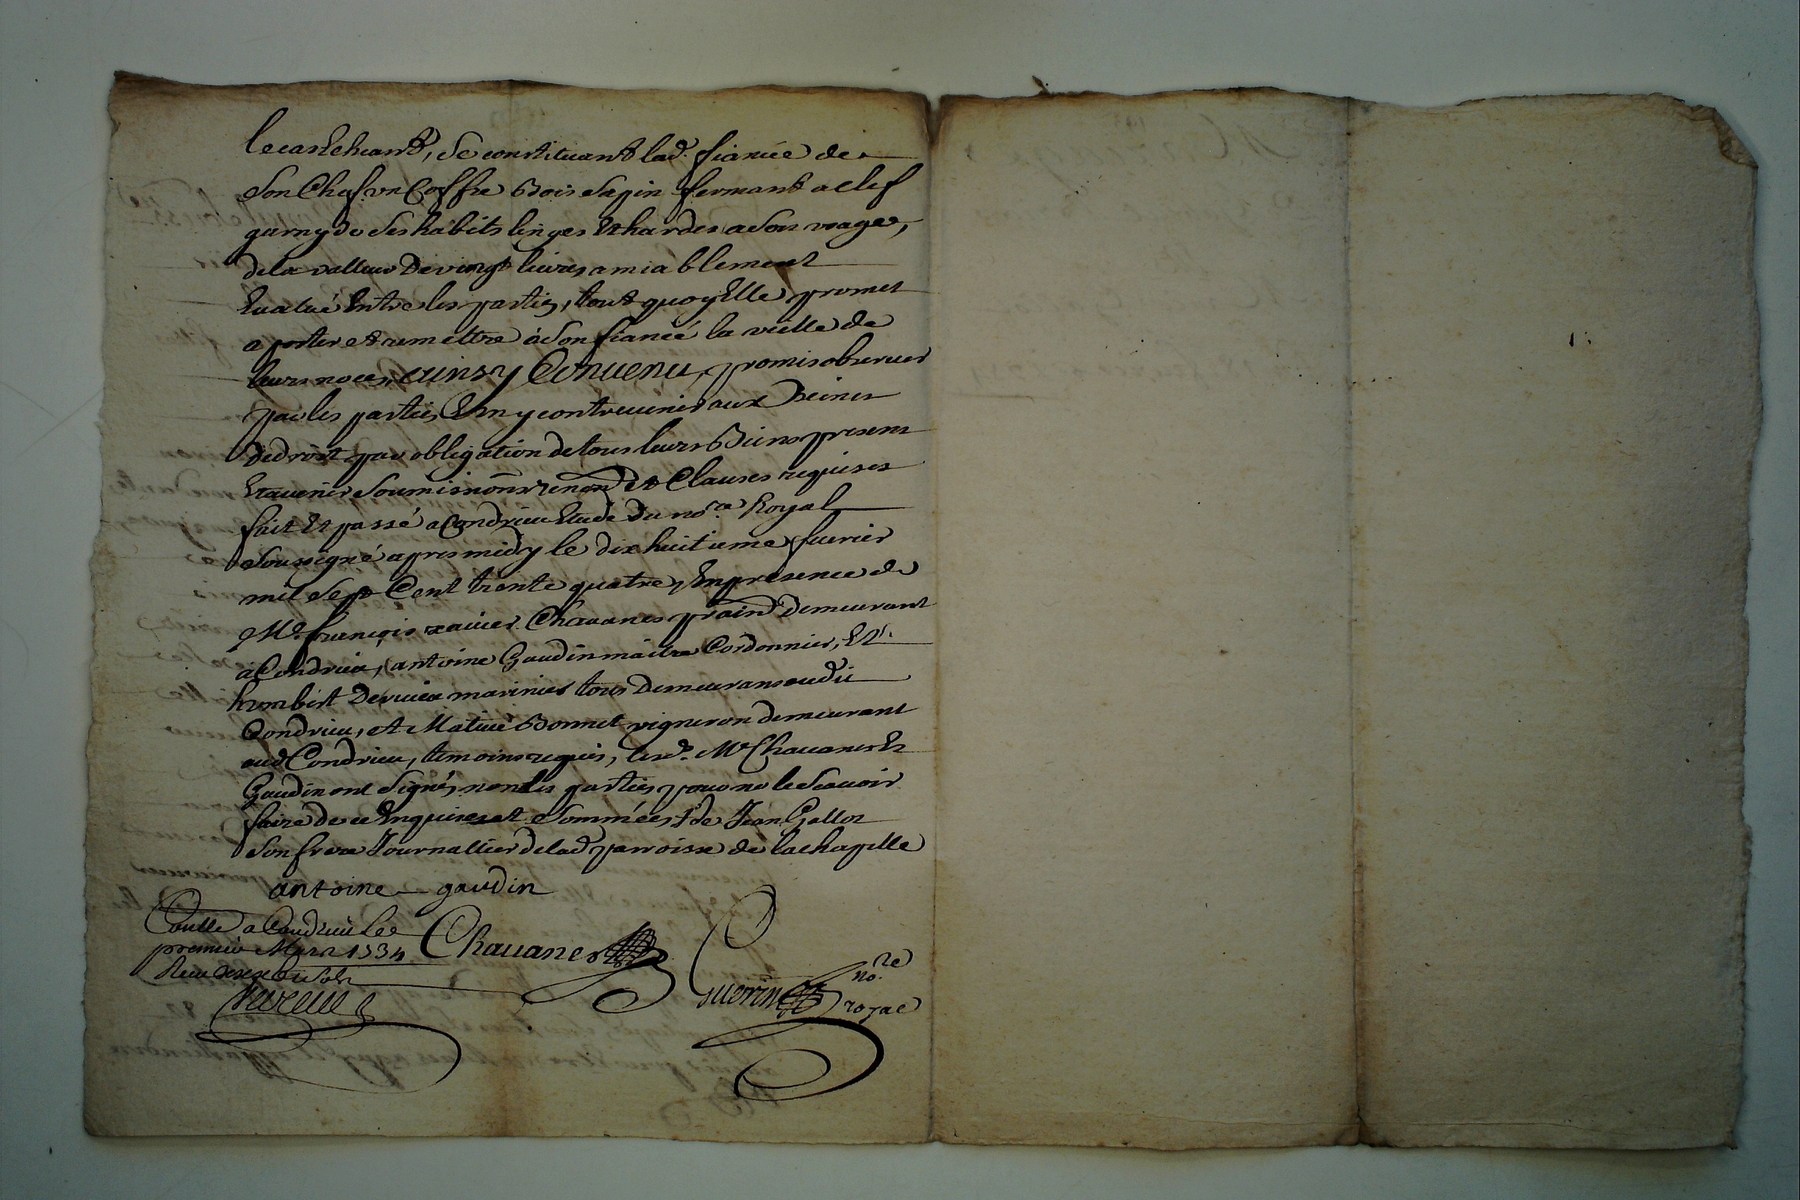 le cas Echeant, se constituant lad. fiancée de
son Chef vn Coffre Bois sapin fermant a clef
garny de ses habits linges Et hardes a son vsage,
de la valleur De vingt liures amiablement
Eualué Entre les parties, tout quoy Elle promet
aporter et remettre à son fiancé la veille de
leurs noces, ainsy Conuenu, promis obseruer
par les parties, Et n'y contreuenir aux Peines
de droit par obligation de tous leurs Biens presens
Et auenir soumissions renon.on Et Clauses requises
fait Et passé a Condrieu Etude du no.re Royal
soussigné apres midy le dix huitieme feurier
mil Sept Cent trente quatre, En presence de
Me. françois xauier Chauanes prain demeurant
a Condrieu, antoine Gaudin maitre Cordonnier, Et
humbert Deruieu marinier tous demeurans audit
Condrieu, et Matieu Bonnet vigneron demeurant
aud. Condrieu, temoins requis, lesd. Me Chauanes Et
Gaudin ont signés non les parties pour ne le scauoir
faire de ce Enquises et sommées & de Jean Gallot
son frere Journallier de lad. parroisse de la chapelle
antoine gaudin
Conllé a Condrieu le
premier Mars 1734 Chauanes
Receu sols
Guerin no.re royal